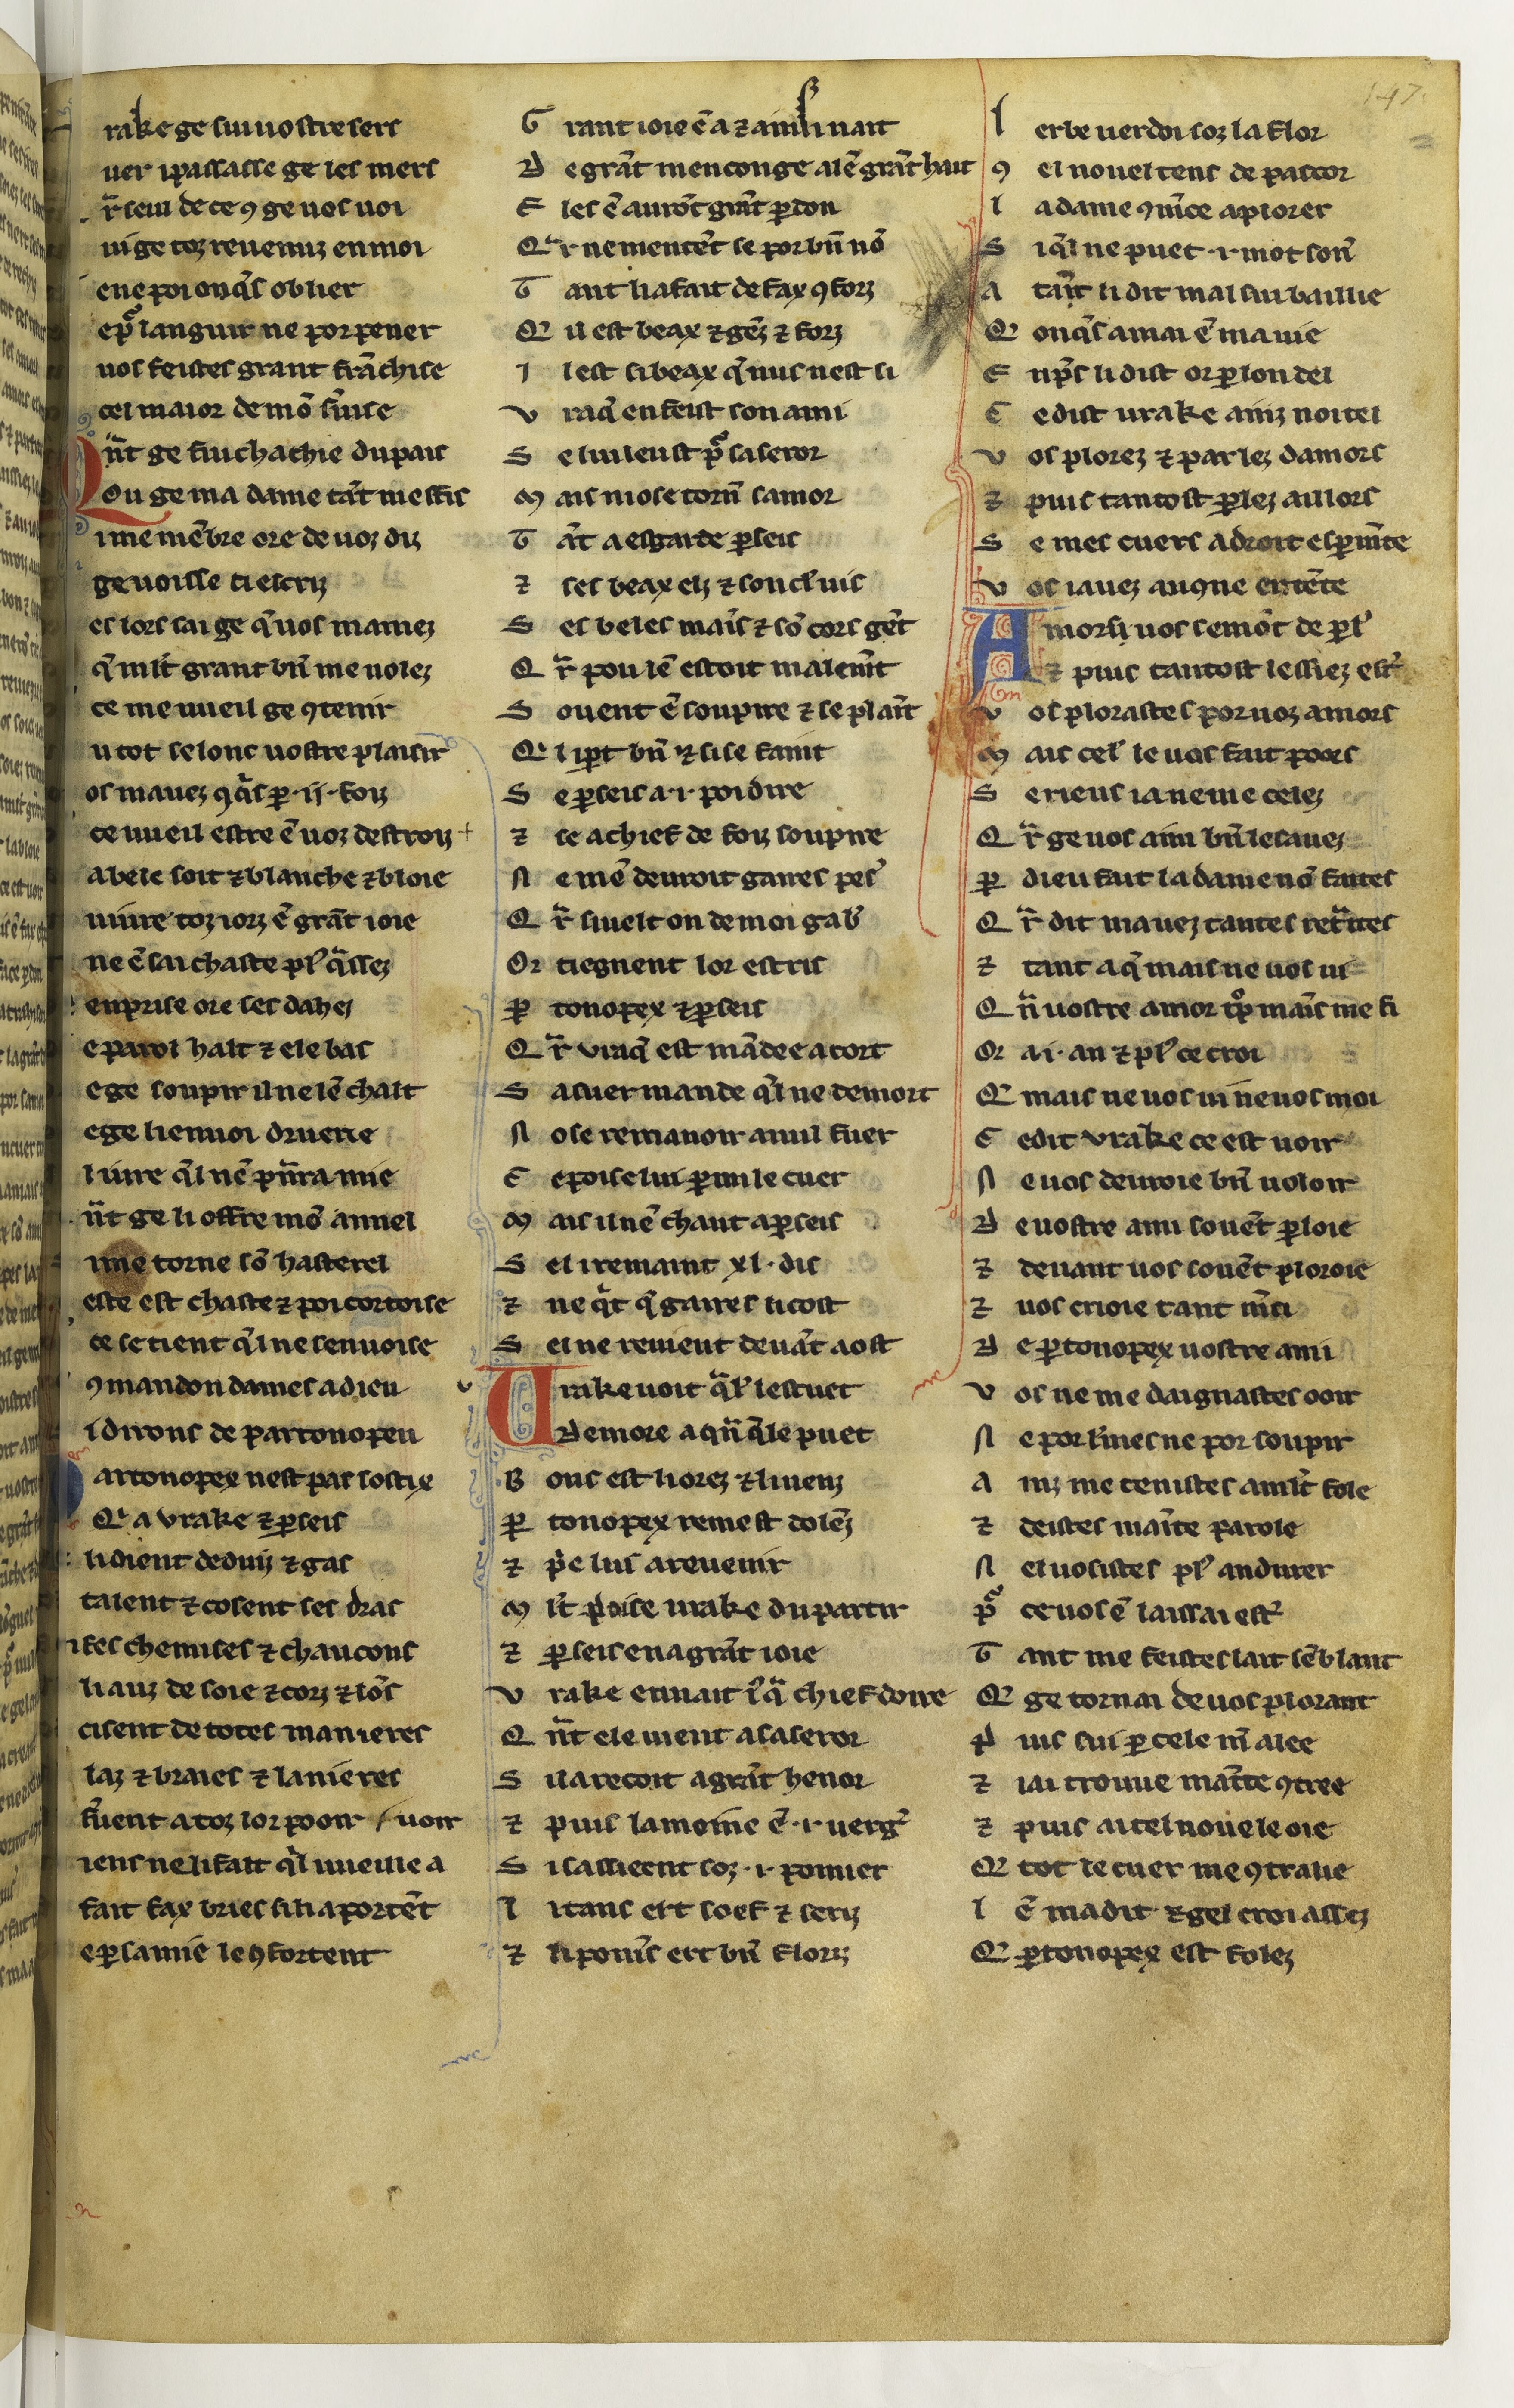 rake ge sui uostre sers
uer i passasse ge les mers
r̃ seui de ce ꝯ ge uos uoi
ui ge toz reuenuz en moi
ene poi onq̃s oblier
e pͦ languir ne por pener
uos feistes grant frãchise
cel maior de mõ s̃uise
Qñt ge fui chachie du pais
Ou ge ma dame tãt meffis
i me mẽbre ore de uoz diz
ge uoisse ci escriz
es lors sai ge q̃ uos mamez
q̃ ml̃t grant bñ me uolez
ce me uueil ge ꝯtenir
u tot selonc uostre plaisir
os mauez ꝯq̃s ꝑ .ii. foiz
ce uueil estre ẽ uoz destroiz
a bele soit ⁊ blanche ⁊ bloie
uiure toz iorz ẽ grãt ioie
ne ẽ sai chaste pl᾿ q̃ssez
enprise ore ses dahez
e parol halt ⁊ ele bas
e ge soupir il ne lẽ chalt
e ge li enuoi druerie
l iure q̃l nẽ pñra mie
ñt ge li offre mõ annel
i me torne sõ hasterel
este est chaste ⁊ poi cortoise
ce se tient q̃l ne senuoise
ꝯmandon dames a dieu
i dirons de partonopeu
artonopex nest pas sostix
Qͥ a vrake ⁊ ꝑseis
li dient deduiz ⁊ gas
taient ⁊ cosent ses dras
ises chemises ⁊ chaucons
liauz de soie ⁊ corz ⁊ lõs
cisent de totes manieres
laz ⁊ braies ⁊ lanieres
s̃uent a toz lor pooir / uoir
iens ne li faut q̃l uueille a
fait fax bries si li aportẽt
e ꝑ samie le ꝯfortent
G rant ioie ẽ a ⁊ ainsi uait
D e grãt menconge a lẽ grãt hait
E les ẽ aurõt gr̃nt ꝑdon
Qͣr ne mentẽt se por bñ nõ
T ant li a fait de fax ꝯforz
Qͥ il est beax ⁊ gẽz ⁊ forz
I l est si beax q̃ nus nest si
V raq̃ en feist son ami
S el uileust pͦ sa seror
M ais niole torñ samor
T ãt a esgarde ꝑseis
⁊ ses beax elz ⁊ son cl᾿ uis
S es beles mais̃ ⁊ sõ cors gẽt
Q r̃ pou lẽ estoit malem̃t
S ouent ẽ soupire ⁊ se plaĩt
Qͥ li ꝑt bñ ⁊ si se faint
S e ꝑseis a .i. poi dire
⁊ ce a chief de foiz soupire
N e mẽ deuroit gaires pes᾿
Q r̃ siuelt on de moi gab᾿
Or tiegnent lor estris
ꝑ tonopex ⁊ ꝑseis
Q r̃ vraq̃ est mãdee a cort
S a suer mande q̃l ne demort
N ose remanoir a nul fuer
C e poise lui ꝑmi le cuer
M ais il nẽ chaut a ꝑseis
S el i remaint xl. dis
⁊ ne q̃t q̃ gaires li cost
S el ne reuient deuãt aost
Vrake uoit q̃l᾿ lestuet
Demore a qñ q̃le puet
B ons est li orez ⁊ li uenz
ꝑ tonopex remest dolẽz
⁊ pͥe lui a reuenir
M l̃t poise urake du partir
⁊ ꝑseis en a grãt ioie
V rake en uait i᾿ q̃ chief doire
Q ñt ele uient a sa seror
S il a recoit a grãt henor
⁊ puis la moine ẽ .i. uerg᾿
S i sassieent soz .i. pomier
L i tans ert soef ⁊ seriz
⁊ li pomis̃ ert bñ floriz
L erbe uerdoi soz la flor
ꝯ el nouel tens de pascor
L a dame ꝯm̃ce a plorer
S i q̃l ne puet .i. mot son᾿
A tãnt li dit mal sui baillie
Qͥ onq̃s amai ẽ ma uie
E np̃s li dist or ꝑlon del
C e dist urake ainz noitel
V os plorez ⁊ parlez damors
⁊ puis tantost ꝑlez aillors
S e mes cuers a droit esꝑim̃te
V os i auez auqne entẽte
Amors si uos semõt de ꝑl᾿
⁊ puis tantost lessiez est᾿
V os plorastes por uoz amors
M ais cel᾿ le uos fait poors
S eriens ia ne me celez
Q r̃ ge uos aim bñ le sauez
ꝑ dieu fait la dame nõ faites
Q r̃ dit mauez tantes ret̃ites
⁊ tant a q̃ mais ne uos ui
Q ñ uostre amor tͦp mais̃ me fi
Or a .i. an ⁊ pl᾿ ce croi
Qͥ mais ne uos ui ne uos moi
C e dit vrake ce est uoir
N e uos deuroie bñ uoloir
D e uostre ami souẽt ꝑloie
⁊ deuant uos souẽt ploroie
⁊ uos crioie tant m̃ci
D e ꝑtonopex uostre ami
V os ne me daignastes ooir
N e por l᾿mes ne por soupir
A inz me tenistes a ml̃t fole
⁊ deistes mainte parole
N el uosistes pl᾿ andurer
pͦ ce uos ẽ laissai est᾿
T ant me feistes lait sẽblant
Qͥ ge tornai de uos plorant
P uis sui ꝑ cele m᾿ alee
⁊ iai trouue mainte ꝯtree
⁊ puis ai tel nouele oie
Qͥ tot le cuer me ꝯtralie
L ẽ ma dit ⁊ gel croi assez
Qͥ ꝑtonopex est folez